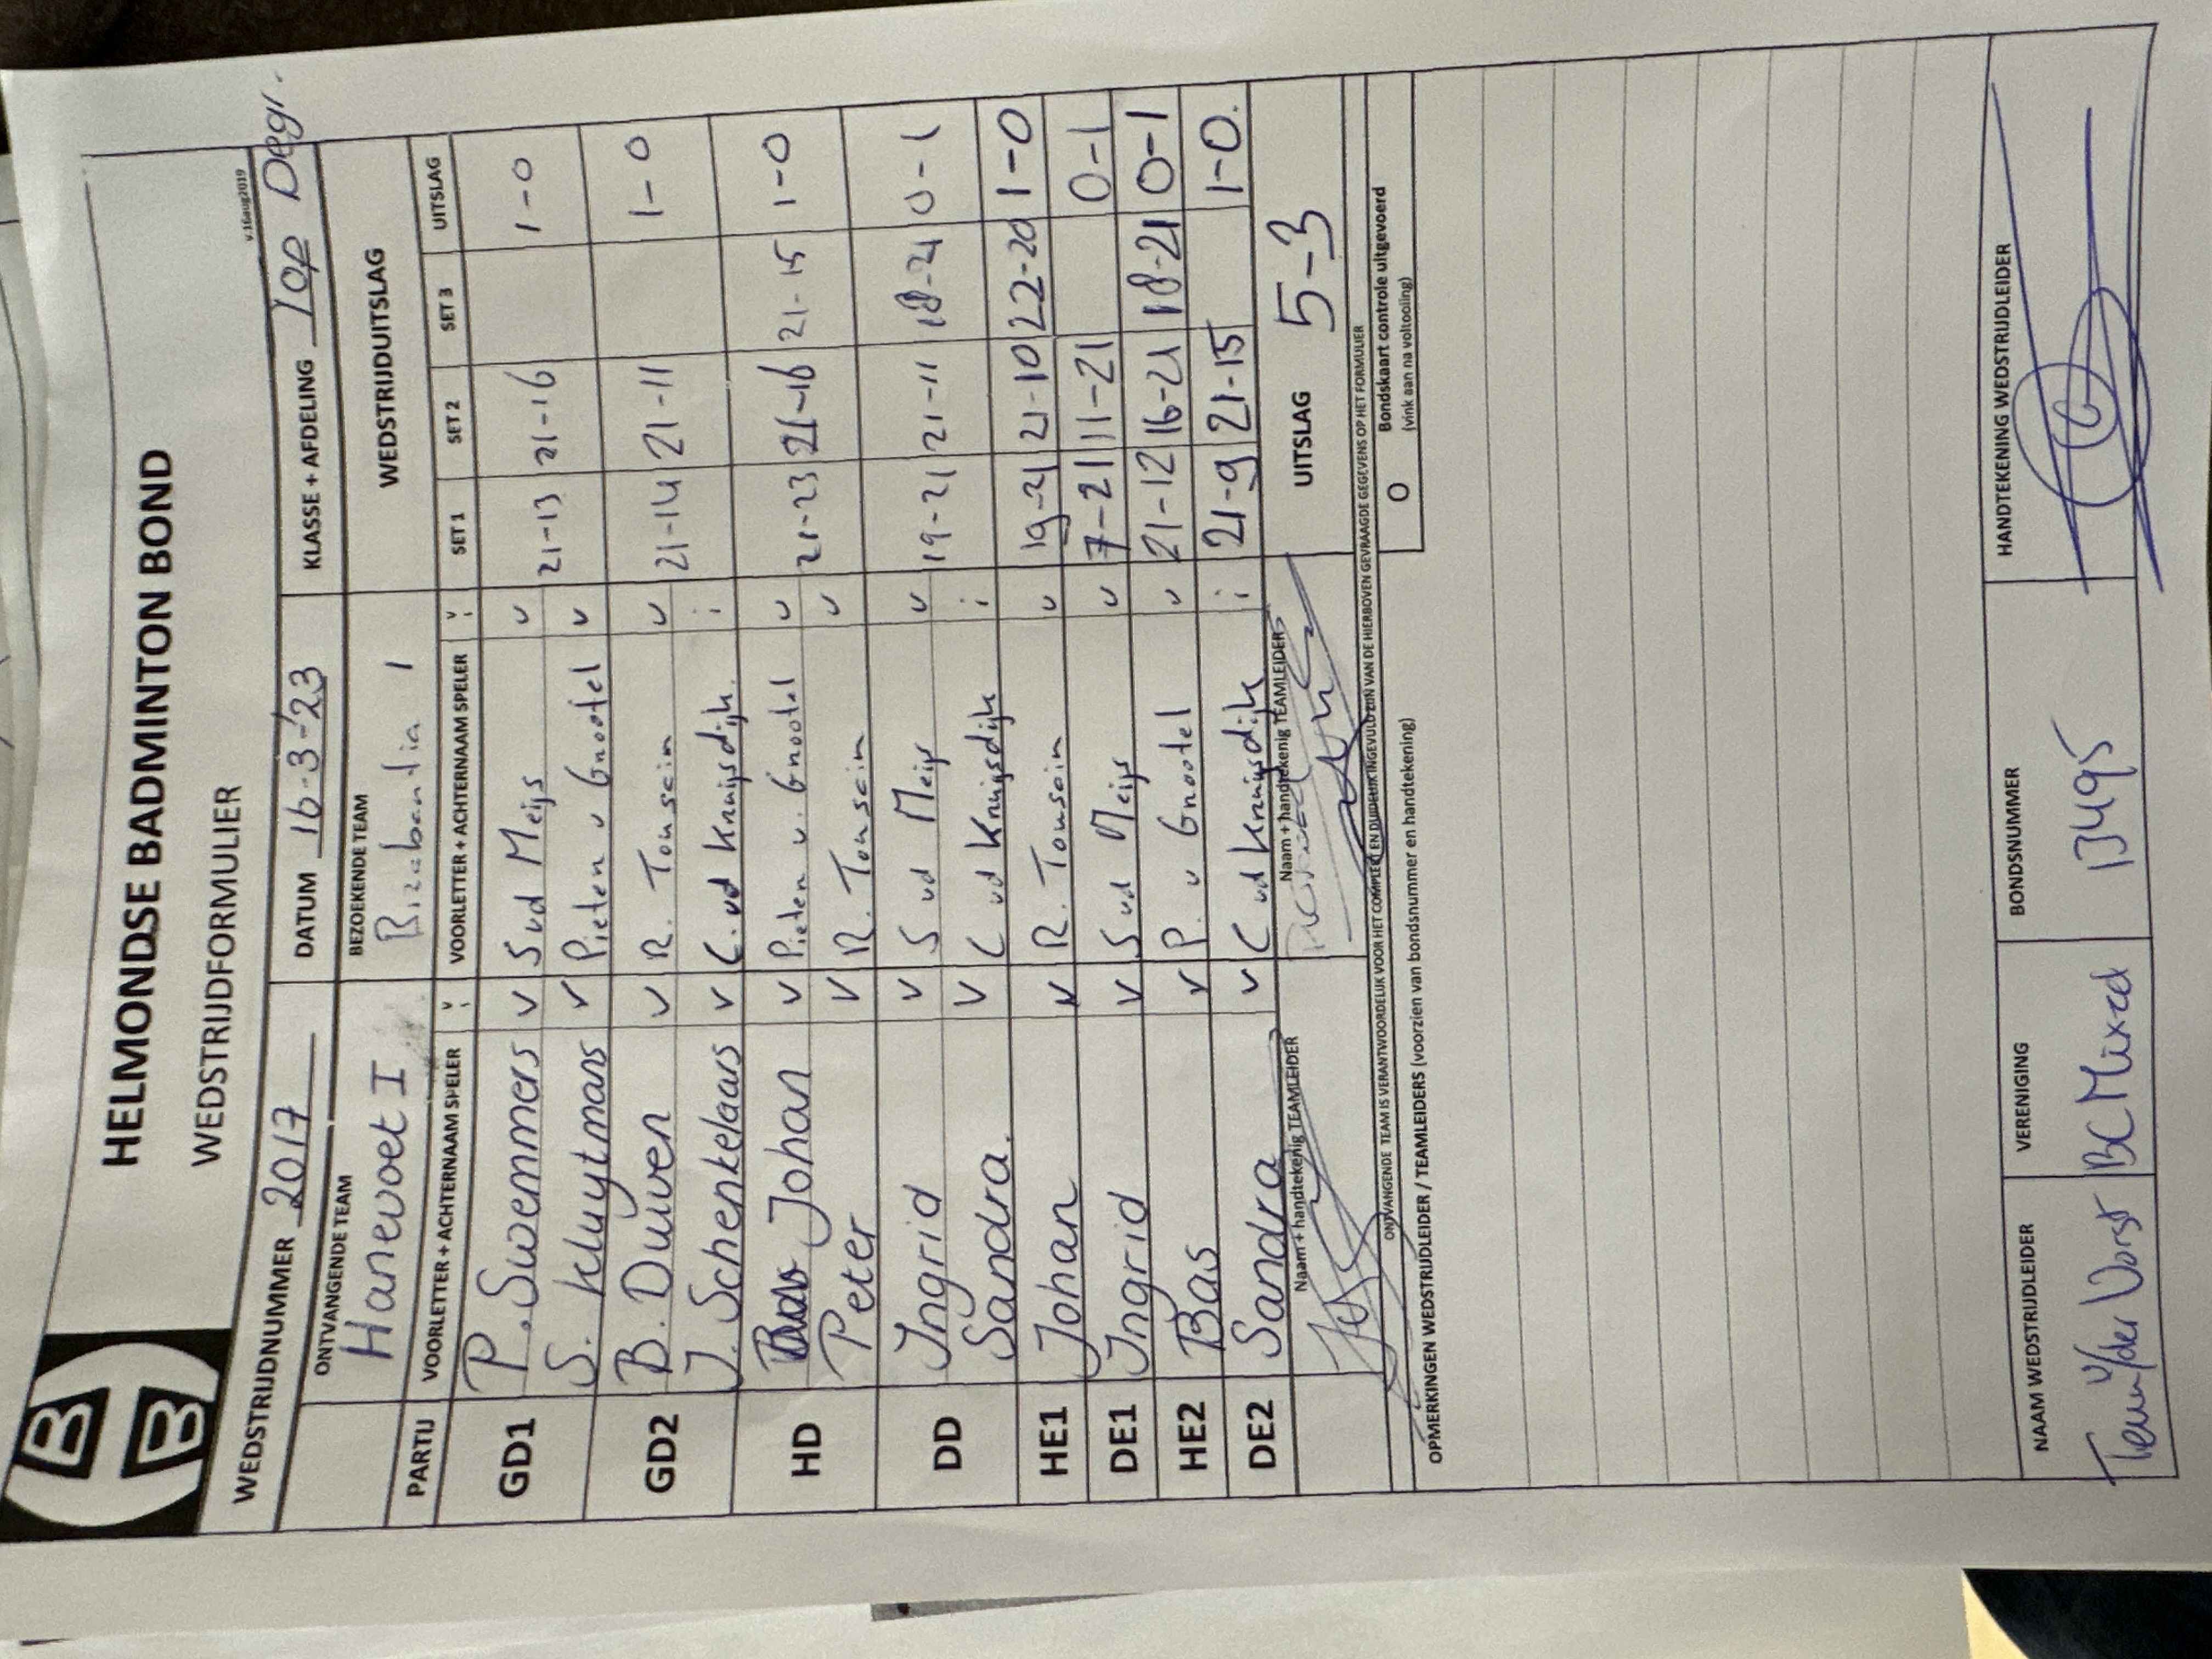 HELMONDSE BADMINTON BOND
WEDSTRIJDFORMULIER
v.16aug2019
WEDSTRIJDNUMMER 2017 DATUM 16-3-'23 KLASSE + AFDELING Top Degr.
ONTVANGENDE TEAM BEZOEKENDE TEAM WEDSTRIJDUITSLAG
Hanevoet I 1
PARTIJ VOORLETTER + ACHTERNAAM SPELER v i VOORLETTER + ACHTERNAAM SPELER v i SET 1 SET 2 SET 3 UITSLAG
GD1 P. Swemmers v S vd Meijs v 21-13 21-16 1-0
S. Kluytmans v Pieter v Gnootel v
GD2 B. Duwen v R. Tousain v 21-14 21-11 1-0
J. Schenkelaars v C. vd Knuijsdijk. i
HD Johan v Pieter v. Gnootel v 21-23 21-16 21-15 1-0
Peter v R. Tousain v
DD Ingrid v S vd Meijs v 19-21 21-11 18-21 0-1
Sandra. v C vd Knuijsdijk i
HE1 Johan v R. Tousain v 19-21 21-10 22-20 1-0
DE1 Ingrid v S vd Meijs v 7-21 11-21 0-1
HE2 Bas v P. v Gnootel v 21-12 16-21 18-21 0-1
DE2 Sandra v C vd Knuijsdijk i 21-9 21-15 1-0.
Naam + handtekenig TEAMLEIDER Naam + handtekenig TEAMLEIDER UITSLAG 5-3
ONTVANGENDE TEAM IS VERANTWOORDELIJK VOOR HET COMPLEET EN DUIDELIJK INGEVULD ZIJN VAN DE HIERBOVEN GEVRAAGDE GEGEVENS OP HET FORMULIER
O Bondskaart controle uitgevoerd
(vink aan na voltooiing)
OPMERKINGEN WEDSTRIJDLEIDER / TEAMLEIDERS (voorzien van bondsnummer en handtekening)
NAAM WEDSTRIJDLEIDER VERENIGING BONDSNUMMER HANDTEKENING WEDSTRIJDLEIDER
Teun v/der Vorst BC Mixed 13495